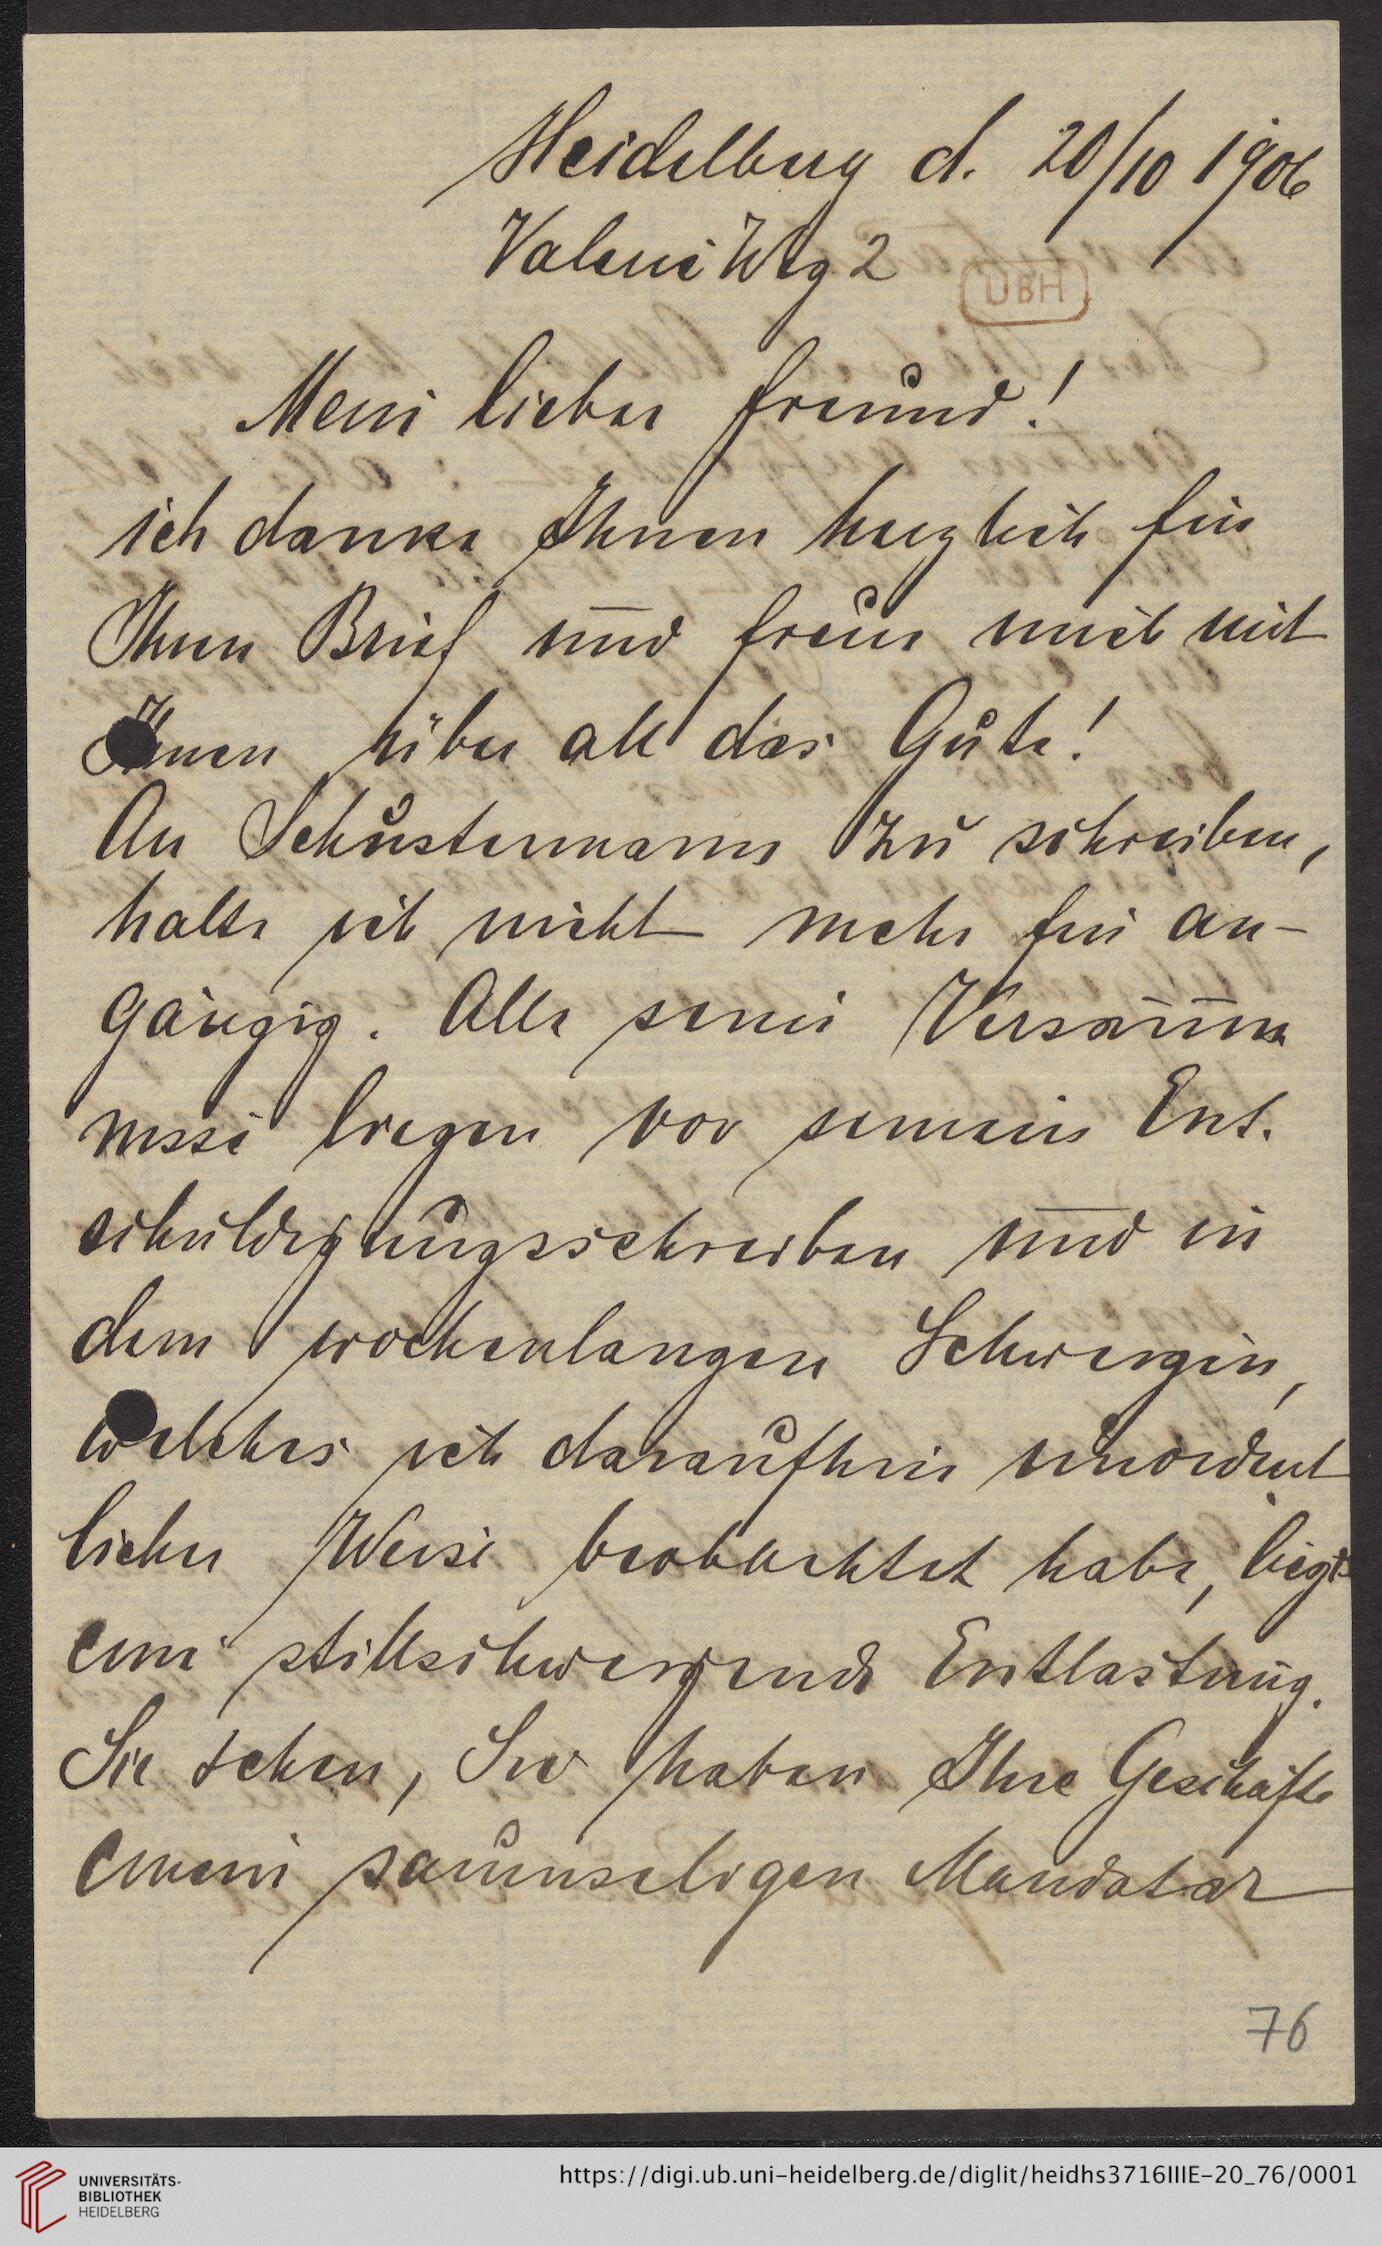 Heidelberg d. 20/10 1906
Valerie Weg 2
UBH
Mein lieber Freund!
ich danke Ihnen herzlich für
Ihren Brief und freue mich mit
Ihnen über all das Gute!
An Schustermann zu schreiben,
halte ich nicht mehr für an-
gängig. Alle seine Versäum
nisse liegen vor seinem Ent-
schuldigungsschreiben und in
dem wochenlangen Schweigen,
welches ich daraufhin unordent
licher Weise beobachtet habe, liegt
eine stillschweigende Entlastung.
Sie sehen, Sie haben Ihre Geschäfte
einem saumseligen Mandatar
76
UNIVERSITÄTS-
BIBLIOTHEK
HEIDELBERG
https://digi.ub.uni-heidelberg.de/diglit/heidhs3716IIIE-20_76/0001